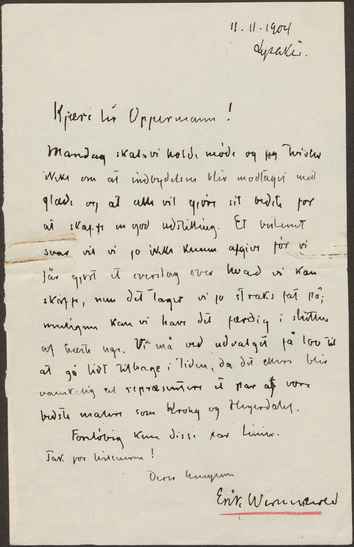 11-11-1904
Lysaker.
Kjære hr Oppermann!
Mandag skal vi holde møde og jeg tviler
ikke om at indbydelsen blir modtaget med
glæde og at alle vil gjøre sit bedste for
at skaffe en god udstilling. Et bestemt
svar vil vi jo ikke kunne afgive før vi
får gjort et overslag over hvad vi kan
skaffe, men det tager vi jo straks fat på;
muligens kan vi have det færdig i slutten
af næste uge. Vi må ved udvalget få lov til
at gå lidt tilbage i tiden, da det ellers blir
vanskelig at repræsentere et par af vore
bedste malere som Krohg og Heyerdahl.
Foreløbig kun disse par linier.
Tak for hilsenen!
Deres
Erik Werenskiold